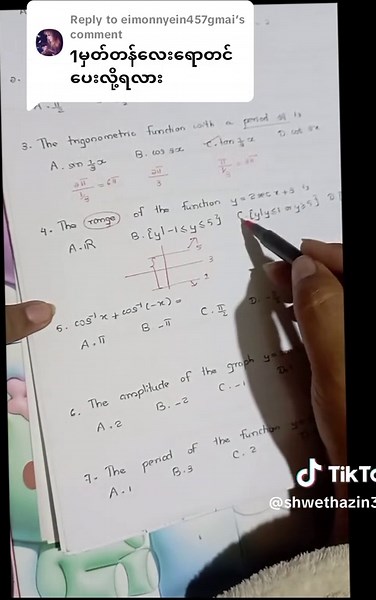 Reply to eimonnyein457gmai's
comment
1မှတ်တန်လေးရောတင်
ပေးလို့ရလား
3. The trigonometric function with a period
A. sin 1/3 x B. cos 3x C. tan 1/3 x D. cot 3x
2π/(1/3) = 6π 2π/3 π/(1/3) = 3π
4. The range of the function y = 2 sec x + 3 is
A. ℝ B. {y| -1 ≤ y ≤ 5} C. {y|y ≤ 1 or y ≥ 5} D.
5
3
2
5. cos⁻¹ x + cos⁻¹ (-x) =
A. π B. -π C. π/2 D.
6. The amplitude of the graph y =
A. 2 B. -2 C. -1 D.
7. The period of the function
A. 1 B. 3 C. 2
TikTo
@shwethazin3